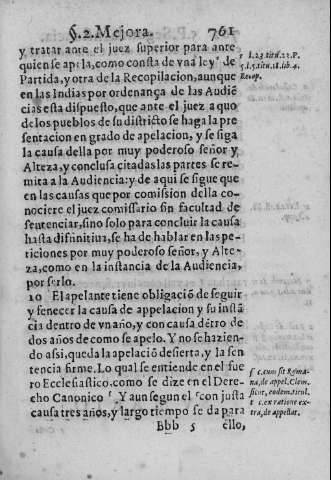 §. 2. Mejora. 761
y tratar ante el juez superior para ante
quien se apela, como consta de vna ley r de
Partida, y otra de la Recopilacion, aunque
en las Indias por ordenança de las Audiẽ
cias esta dispuesto, que ante el juez a quo
de los pueblos de su distristo se haga la pre
sentacion en grado de apelacion, y se siga
la causa della por muy poderoso señor y
Alteza, y conclusa citadas las partes se re-
mita a la Audiencia: y de aqui se sigue que
en las causas que por comision della co-
nociere el juez comissario sin facultad de
sentenciar, sino solo para concluir la causa
hasta difinitiua, se ha de hablar en las pe-
ticiones por muy poderoso señor, y Alte-
za, como en la instancia de la Audiencia,
por serlo.
10 El apelante tiene obligaciõ de seguir
y fenecer la causa de apelacion y su instã
cia dentro de vn año, y con causa dẽtro de
dos años de como se apelo. Y no se hazien-
do assi, queda la apelaciõ desierta, y la sen
tencia firme. Lo qual se entiende en el fue
ro Ecclesiastico. como se dize en el Dere-
cho Canonico s Y aun segun el t con justa
causa tres años, y largo tiempo se da para
Bbb 5 ello,
r l. 23 titu. 23. P.
5. l. 5. titu. 18. lib. 4.
Recop.
s c. cum sit Roma-
na, de appel. Clem.
sicut, eodem. titul.
t c. ex ratione ex-
tra, de appellat.